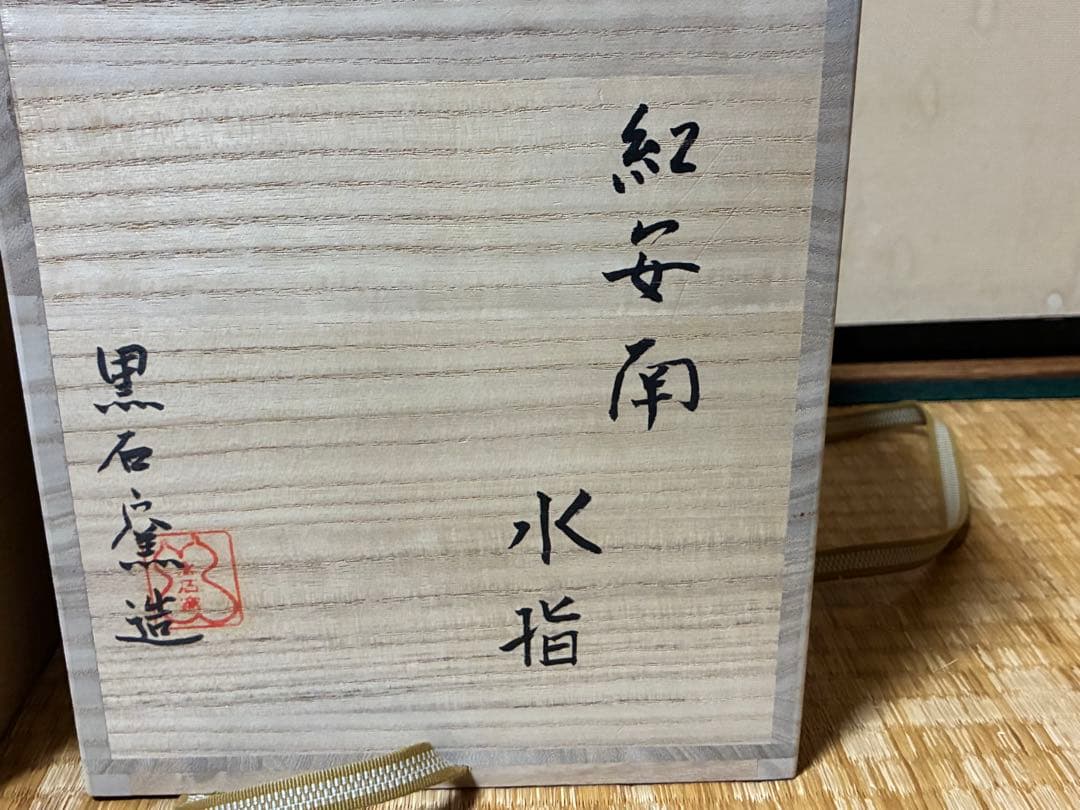 紅安南
水指
黒石窯造